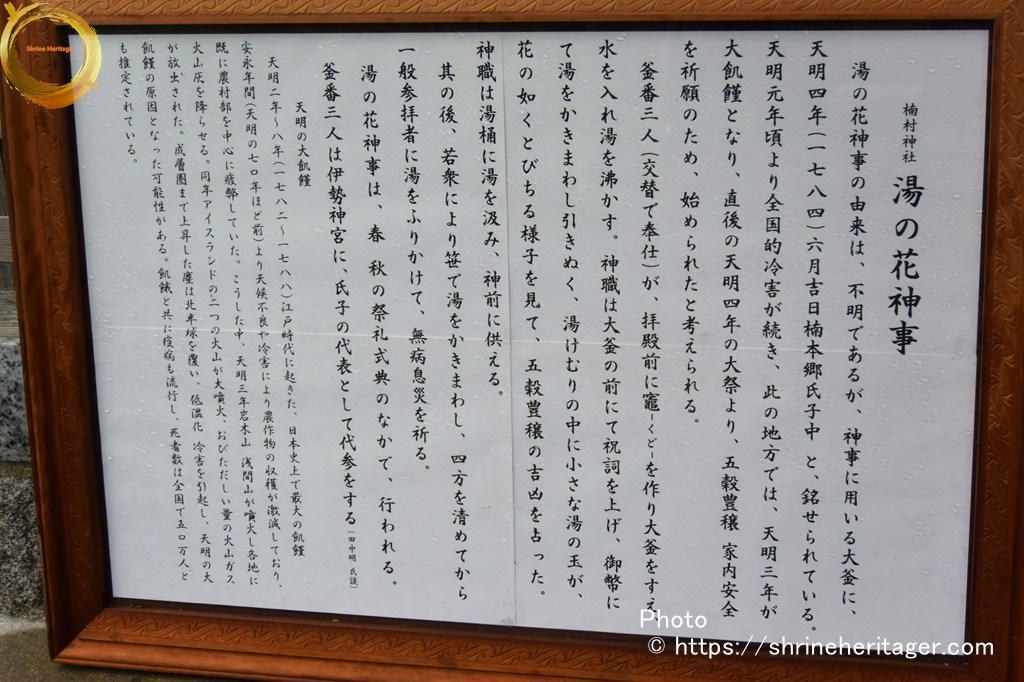 楠村神社 湯の花神事
湯の花神事の由来は、不明であるが、神事に用いる大釜に、
天明四年(一七八四)六月吉日楠本郷氏子中 と、銘せられている。
天明元年頃より全国的冷害が続き、此の地方では、天明三年が
大飢饉となり、直後の天明四年の大祭より、五穀豊穣 家内安全
を祈願のため、始められたと考えられる。
釜番三人(交替で奉仕)が、拝殿前に竈-くど-を作り大釜をすえ
水を入れ湯を沸かす。神職は大釜の前にて祝詞を上げ、御幣に
て湯をかきまわし引きぬく、湯けむりの中に小さな湯の玉が、
花の如くとびちる様子を見て、五穀豊穣の吉凶を占った。
神職は湯桶に湯を汲み、神前に供える。
其の後、若衆により笹で湯をかきまわし、四方を清めてから
一般参拝者に湯をふりかけて、無病息災を祈る。
湯の花神事は、春 秋の祭礼式典のなかで、行われる。
釜番三人は伊勢神宮に、氏子の代表として代参をする(田中明 氏談)
天明の大飢饉
天明二年〜八年(一七八二〜一七八八)江戸時代に起きた、日本史上で最大の飢饉
安永年間(天明の七〇年ほど前)より天候不良や冷害により農作物の収穫が激減しており、
既に農村部を中心に疲弊していた。こうした中、天明三年岩木山 浅間山が噴火し各地に
火山灰を降らせる。同年アイスランドの二つの火山が大噴火、おびただしい量の火山ガス
が放出された。成層圏まで上昇した塵は北半球を覆い、低温化 冷害を引起し、天明の大
飢饉の原因となった可能性がある。飢餓と共に疫病も流行し、死者数は全国で五〇万人と
も推定されている。
Shrine Heritager
Photo
© https://shrineheritager.com